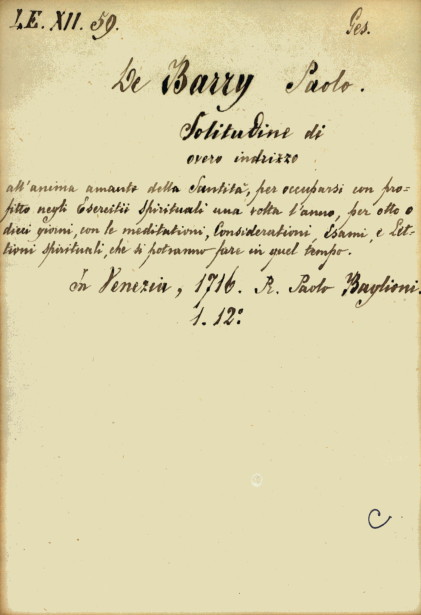 I.E. XII. 59. Ges.
De Barry Paolo.
Solitudine di
overo indrizzo
all'anima amante della Santità, per occuparsi con pro-
fitto negli Esercitii Spirituali una volta l'anno, per otto o
dieci giorni, con le meditationi, Considerationi, Esami, e Let-
tioni Spirituali, che si potranno fare in quel tempo.
In Venezia, 1716. R. Paolo Baglioni.
1. 12º
C